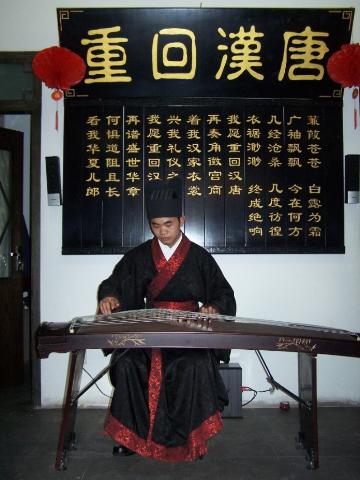 重回漢唐
蒹葭苍苍 白露为霜
广袖飘飘 今在何方
几经沧桑 几度彷徨
衣裾渺渺 终成绝响
我愿重回汉唐
再奏角徵宫商
着我汉家衣裳
兴我礼仪之
我愿重回汉
再谱盛世华章
何惧道阻且长
看我华夏儿郎